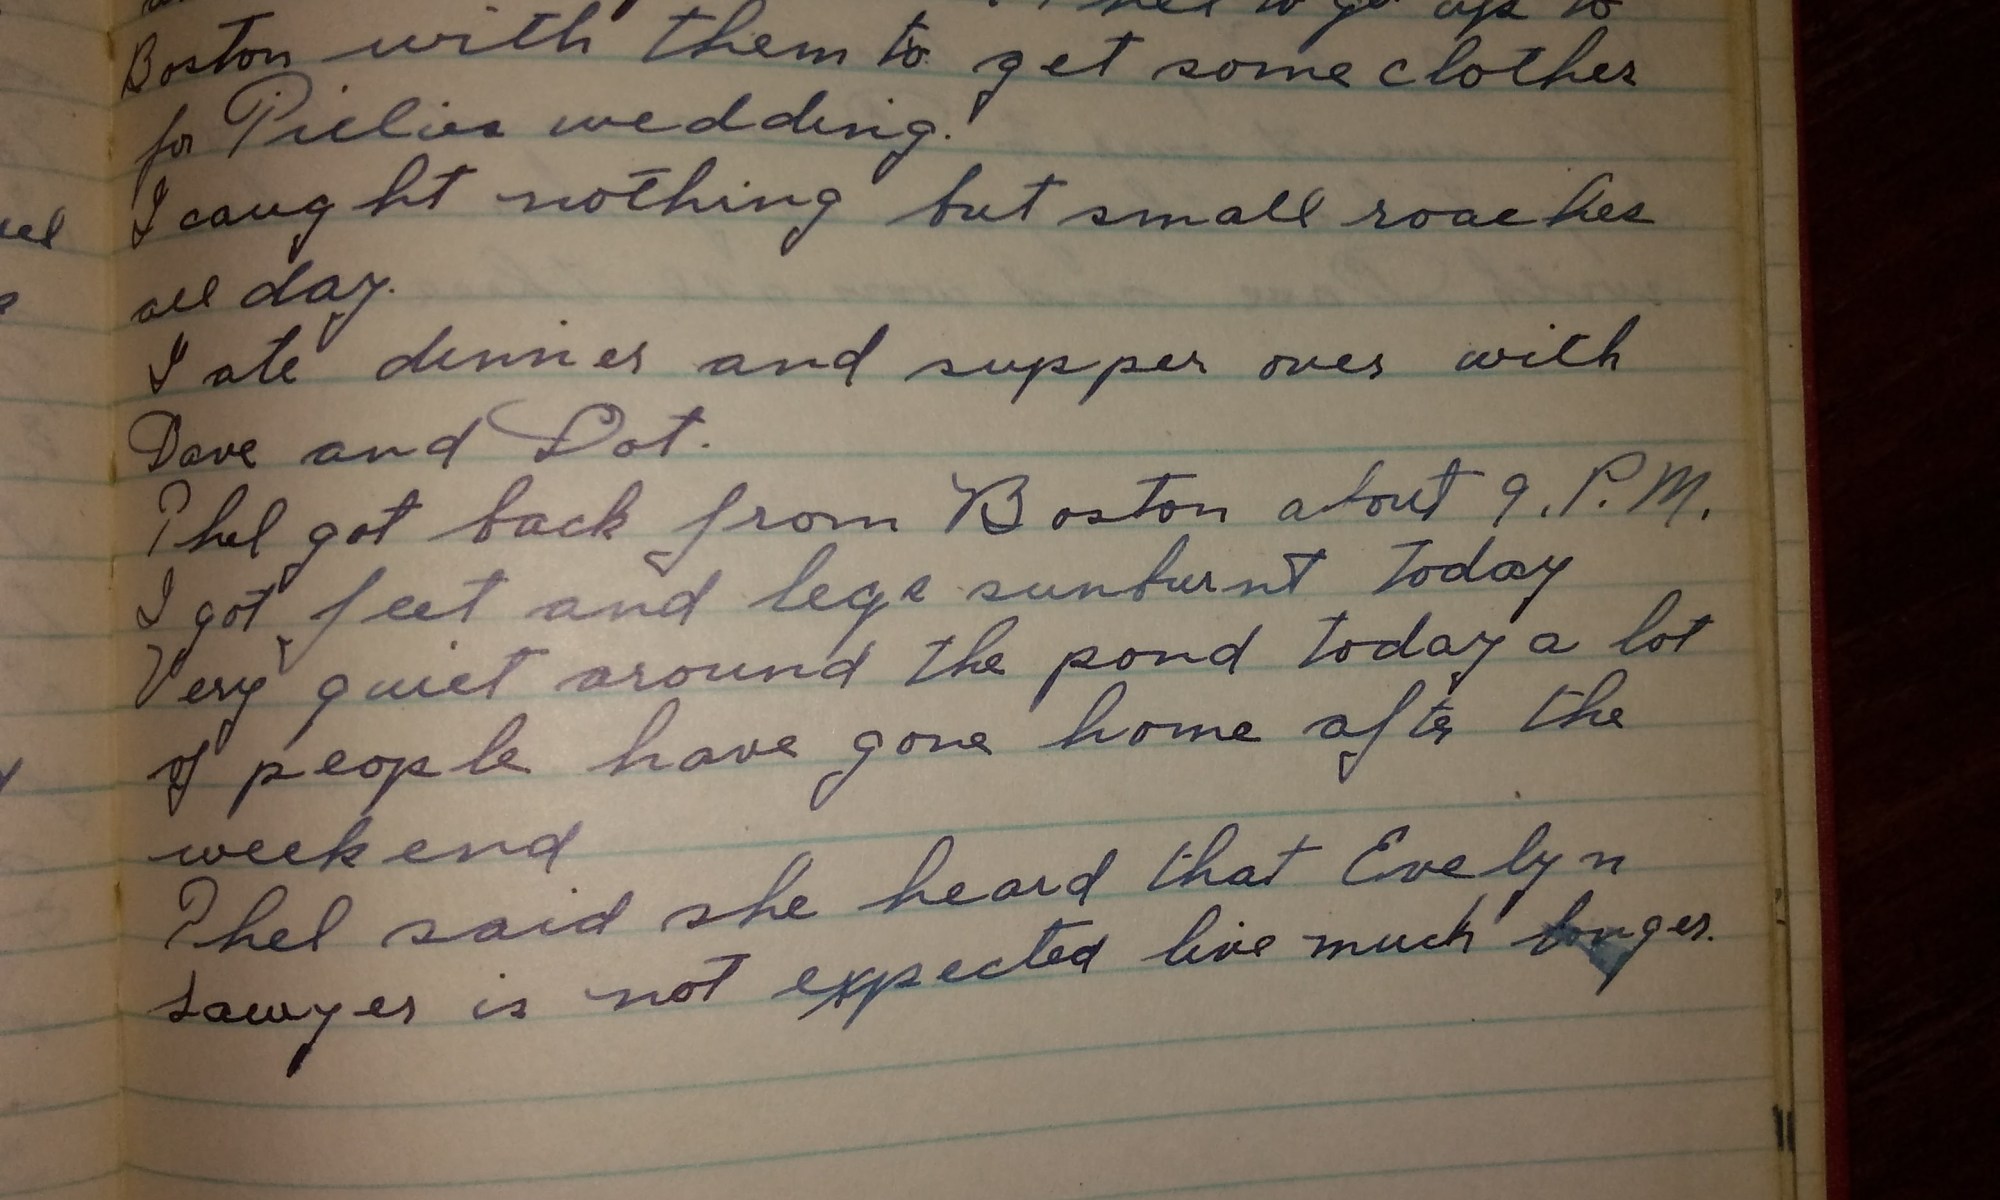 to go up to
Boston with them to get some clothes
for wedding.
I caught nothing but small roaches
all day.
I ate dinner and supper over with
Dave and Dot.
Phel got back from Boston about 9. P.M.
I got feet and legs sunburnt today
Very quiet around the pond today a lot
of people have gone home after the
weekend
Phel said she heard that Evelyn
Sawyer is not expected live much longer.